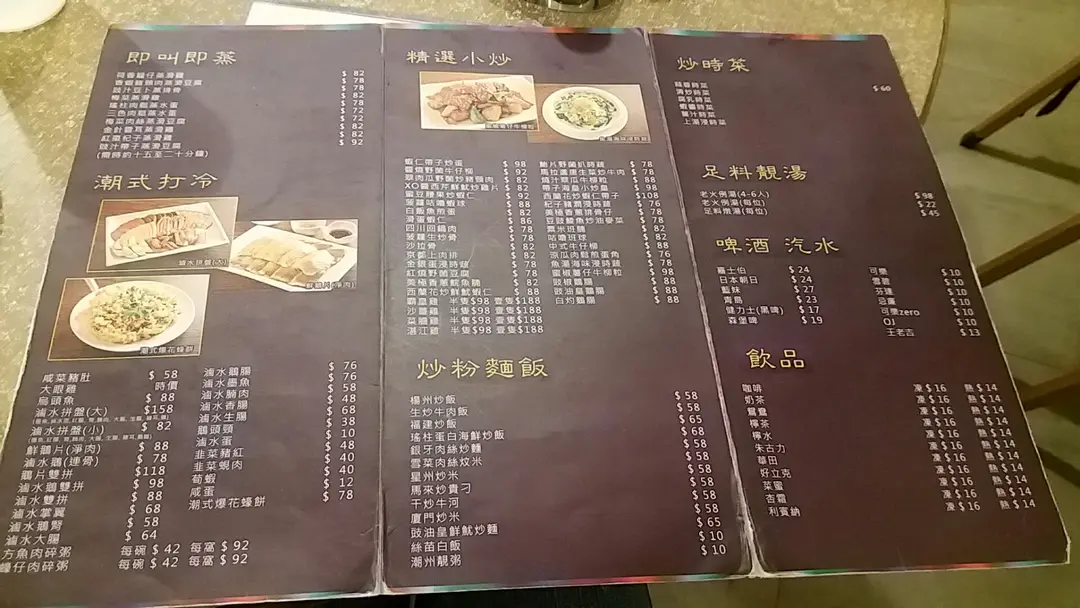 即叫即蒸
荷香貓仔蒸滑雞 $ 82
豉汁豆卜蒸排骨 $ 78
梅菜蒸滑雞 $ 82
瑤柱肉鬆蒸水蛋 $ 78
三色肉鬆蒸水蛋 $ 72
梅菜肉絲蒸滑豆腐 $ 72
金針雲耳蒸滑雞 $ 82
紅棗杞子蒸滑雞 $ 82
豉汁帶子蒸滑豆腐 $ 92
(需時約十五至二十分鐘)
潮式打冷
滷水拼盤(大)
鮮鵝片(淨肉)
潮式爆花蠔餅
咸菜豬肚 $ 58
大眼雞 時價
烏頭魚 $ 88
滷水拼盤(大) $158
滷水拼盤(小) $ 82
鮮鵝片(淨肉) $ 88
滷水鵝(連骨) $ 78
鵝片雙拼 $118
滷水鵝雙拼 $ 98
滷水雙拼 $ 88
滷水掌翼 $ 68
滷水鵝腎 $ 58
滷水大腸 $ 64
方魚肉碎粥 每碗 $ 42 每窩 $ 92
蠔仔肉碎粥 每碗 $ 42 每窩 $ 92
滷水鵝腸 $ 76
滷水墨魚 $ 76
滷水腩肉 $ 58
滷水香腸 $ 48
滷水生腸 $ 68
鵝頭頸 $ 38
滷水蛋 $ 10
韭菜豬紅 $ 48
韭菜蜆肉 $ 40
荀蝦 $ 40
咸蛋 $ 12
潮式爆花蠔餅 $ 78
精選小炒
蝦仁帶子炒蛋 $ 98
$ 92
涼瓜野菌炒豬頸肉 $ 82
XO醬西芹鮮魷炒雞片 $ 82
蜜豆腰果炒蝦仁 $ 92
菠蘿咕嚕蝦球 $ 88
白飯魚煎蛋 $ 82
滑蛋蝦仁 $ 86
四川回鍋肉 $ 78
菠蘿生炒骨 $ 78
沙拉骨 $ 82
京都上肉排 $ 82
金銀蛋浸時蔬 $ 78
紅燒野菌豆腐 $ 78
美極香蔥鯇魚腩 $ 82
西蘭花炒鮮魷蝦仁 $ 88
霸皇雞 半隻$98 壹隻$188
沙薑雞 半隻$98 壹隻$188
菜膽雞 半隻$98 壹隻$188
湛江雞 半隻$98 壹隻$188
鮑片野菌扒時蔬 $ 78
馬拉盞唐生菜炒牛肉 $ 78
燒汁涼瓜牛柳粒 $ 88
帶子海皇小炒皇 $ 98
西蘭花炒蝦仁帶子 $108
杞子豬潤浸時蔬 $ 76
美極香蔥排骨仔 $ 78
豆豉鯪魚炒油麥菜 $ 78
粟米斑腩 $ 82
咕嚕班球 $ 82
中式牛仔柳 $ 88
涼瓜肉鬆煎蛋角 $ 76
魚湯海味浸時蔬 $ 78
蜜椒薯仔牛柳粒 $ 98
豉椒鵝腸 $ 88
豉油皇鵝腸 $ 88
白灼鵝腸 $ 88
炒粉麵飯
楊州炒飯 $ 58
生炒牛肉飯 $ 58
福建炒飯 $ 65
瑤柱蛋白海鮮炒飯 $ 68
銀牙肉絲炒麵 $ 58
雪菜肉絲炆米 $ 58
星州炒米 $ 58
馬來炒貴刁 $ 58
干炒牛河 $ 58
廈門炒米 $ 58
豉油皇鮮魷炒麵 $ 65
絲苗白飯 $ 10
潮州靚粥 $ 10
炒時菜
蒜蓉時菜 $ 60
清炒時菜
腐乳時菜
蝦醬時菜
薑汁時菜
上湯浸時菜
足料靚湯
老火例湯(4-6人) $ 98
老火例湯(每位) $ 22
足料燉湯(每位) $ 45
啤酒 汽水
嘉士伯 $ 24
日本朝日 $ 24
藍妹 $ 27
青島 $ 23
健力士(黑啤) $ 17
森堡啤 $ 19
可樂 $ 10
雪碧 $ 10
芬達 $ 10
忌廉 $ 10
可樂zero $ 10
OJ $ 10
王老吉 $ 13
飲品
咖啡 凍 $ 16 熱 $ 14
奶茶 凍 $ 16 熱 $ 14
鴛鴦 凍 $ 16 熱 $ 14
檸茶 凍 $ 16 熱 $ 14
檸水 凍 $ 16 熱 $ 14
朱古力 凍 $ 16 熱 $ 14
華田 凍 $ 16 熱 $ 14
好立克 凍 $ 16 熱 $ 14
菜蜜 凍 $ 16 熱 $ 14
杏霜 凍 $ 16 熱 $ 14
利賓納 凍 $ 16 熱 $ 14